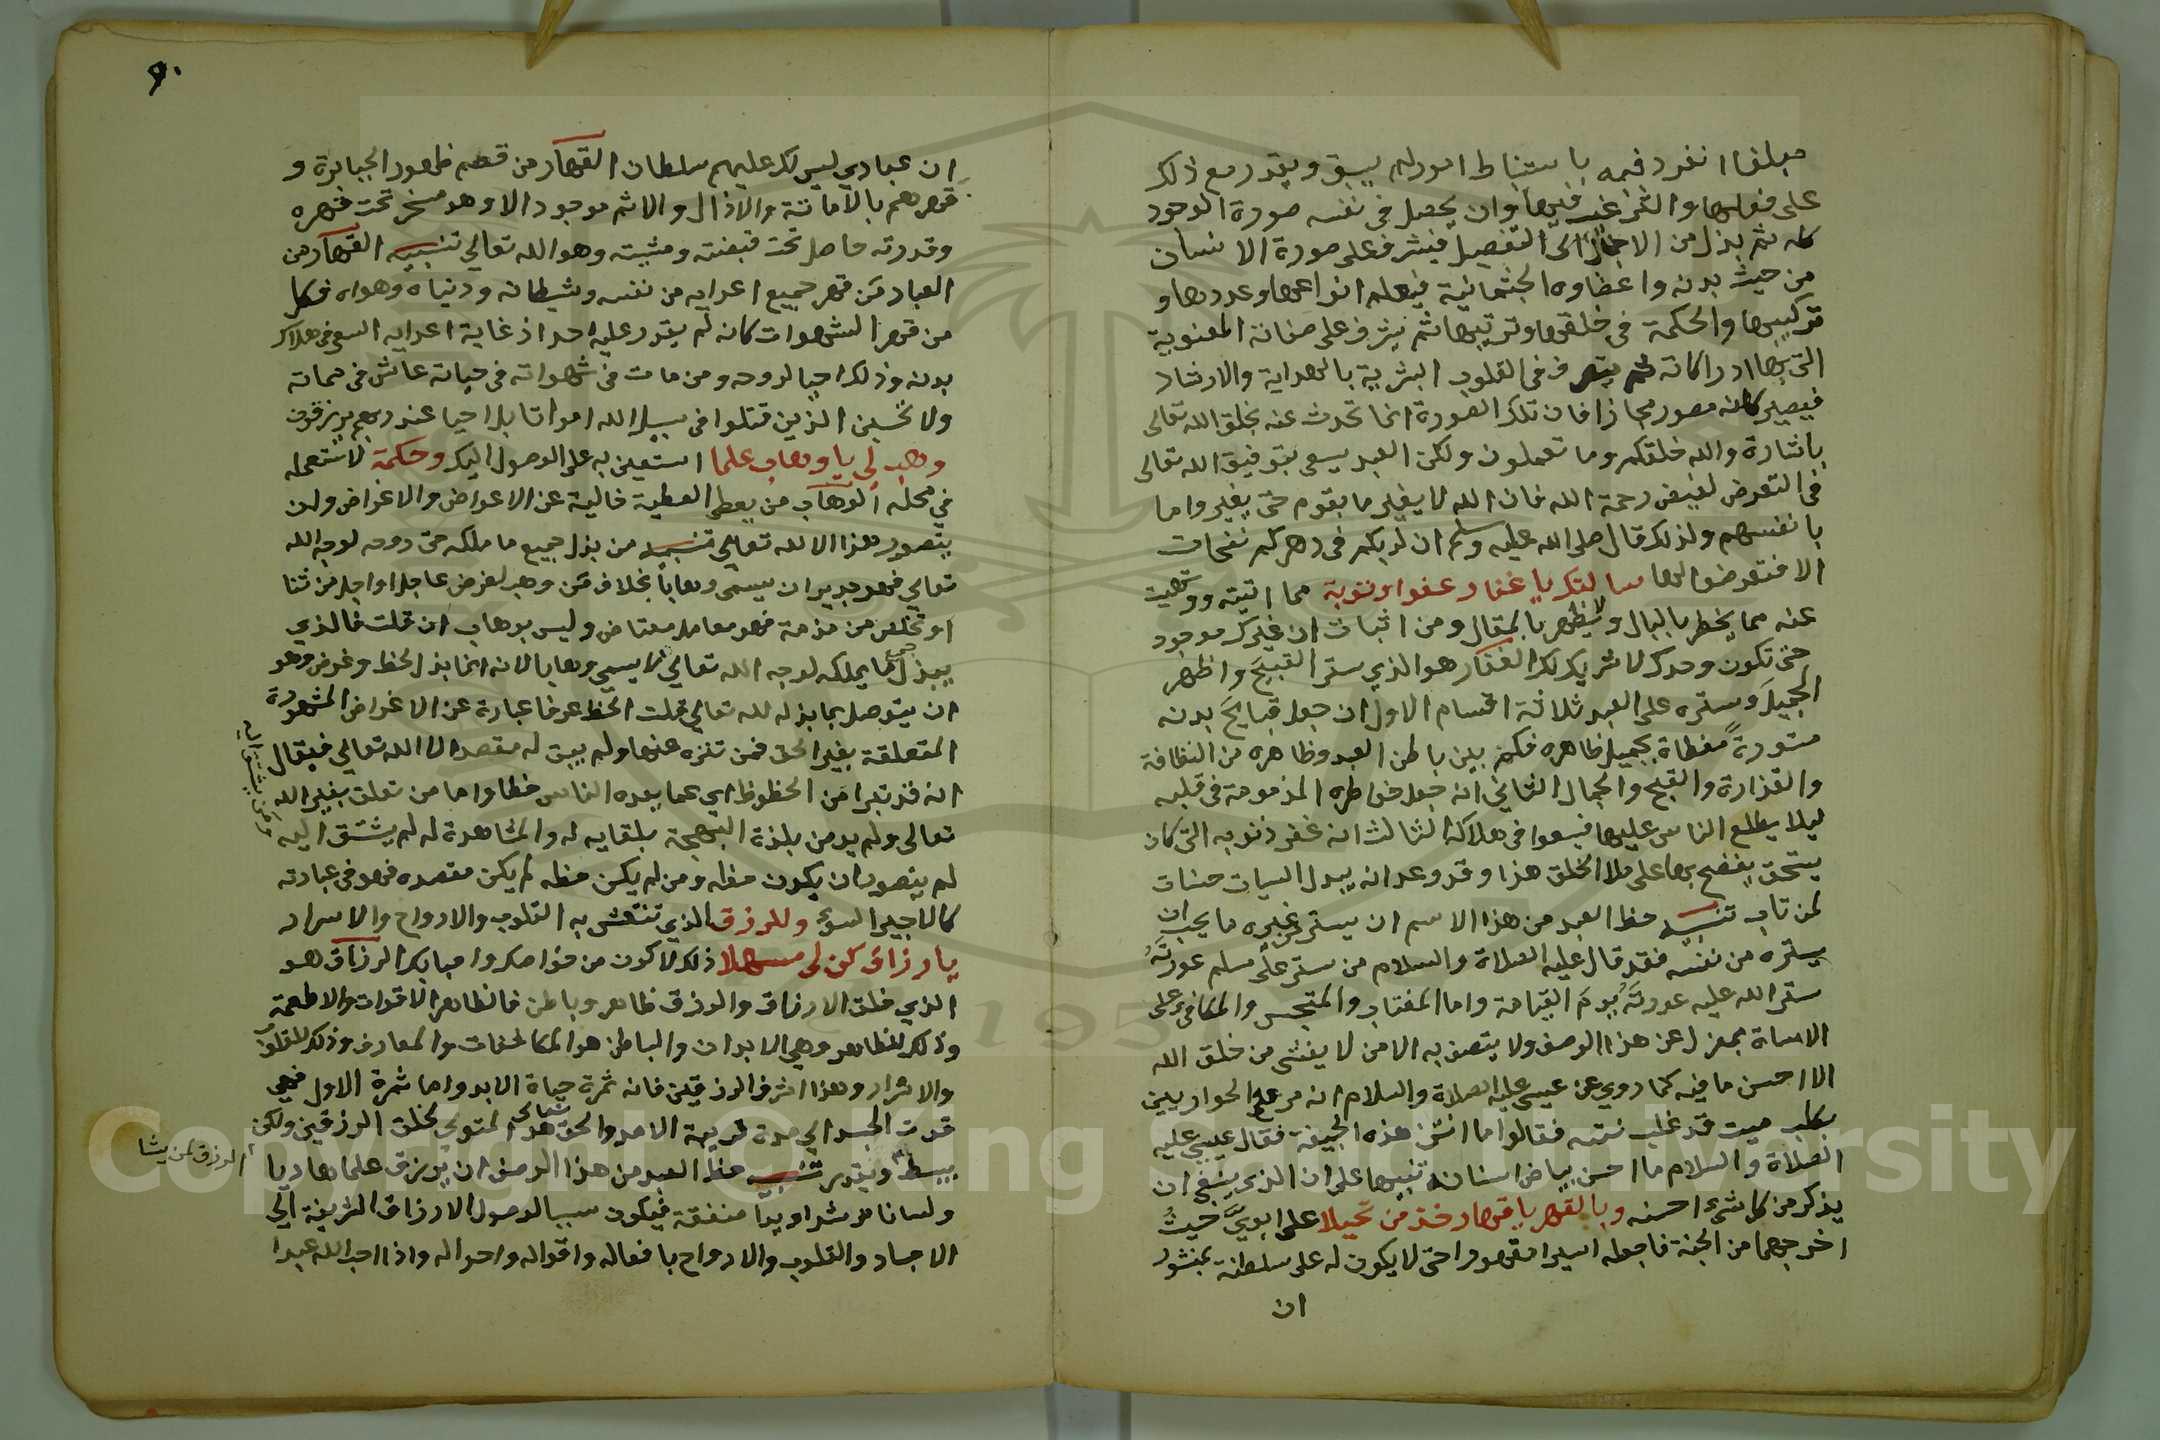 مبلغا انفرد فيه باستنباط امور لم يسبق ويقدر مع ذلك
على فعلها والترغيب فيها وان يحصل في نفسه صورة الوجود
كله ثم ينزل من الاجمال الى التفصيل فيشرف على صورة الانسان
من حيث بدنه واعضاوه الجثمانية فيعلم انواعها وعددها و
تركيبها والحكمة في خلقها وترتيبها ثم يشرف على صفاته المعنوية
التي بها ادراكاته ثم يتصرف في القلوب البشرية بالهداية والارشاد
فيصير كانه مصور مجازا فان تلك الصورة انما تحدث عنه بخلق الله تعالى
باشارة والله خلقكم وما تعملون ولكن العبد يسعى بتوفيق الله تعالى
في التعرض لفيض رحمة الله فان الله لا يغير ما بقوم حتى يغيروا ما
بانفسهم ولذلك قال صلى الله عليه وسلم ان لربكم في دهركم نفحات
الا فتعرضوا لها سالتك يا غفار عفوا وتوبة مما اتيته وونهيت
عنه مما يخطر بالبال ولا يظهر بالمقال ومن اثبات ان غيرك موجود
حتى تكون وحدك لا شريك لك الغفار هو الذي ستر القبيح واظهر
الجميل وستره على العبد ثلاثة اقسام الاول ان جعل قبايح بدنه
مستورة مغطاة بجميل ظاهره فكم بين باطن العبد وظاهره من النظافة
والقذارة والقبح والجمال الثاني انه جعل خواطره المذمومة في قلبه
ليلا يطلع الناس عليها فيسعوا في هلاكه الثالث انه غفر ذنوبه التي كان
يستحق يفتضح بها على ملا الخلق هذا وقد وعد انه يبدل السيات حسنات
لمن تاب تنبيه حظ العبد من هذا الاسم ان يستر غيره ما يحب ان
يستره من نفسه فقد قال عليه الصلاة والسلام من ستر على مسلم عورته
ستر الله عليه عورته يوم القيامة واما المغتاب والمتجسس والمكافي على
الاساة بمعزل عن هذا الوصف ولا يتصف به الا من لا يفشى من خلق الله
الا احسن ما فيه كما روي عن عيسى عليه الصلاة والسلام انه مر مع الحواريين
بكلب ميت قد غلب نتنه فقالوا ما انتن هذه الجيفة فقال عيسى عليه
الصلاة والسلام ما احسن بياض اسنانه تنبيها على ان الذي ينبغي ان
يذكر من كل شئ احسنه وبالقهر يا قهار خذ من تحيلا على ابوي حيث
اخرجهما من الجنة فاجعله اسيرا مقهورا حتى لا يكون له على سلطنة بمنشور
ان
ان عبادي ليس لك عليهم سلطان القهار من قصم ظهور الجبابرة و
قهرهم بالاماتة والاذلال والا ثم موجود الا وهو مسخر تحت قهره
وقدرته حاصل تحت قبضته ومشيته وهو الله تعالى تنبيه القهار من
العباد من قهر جميع اعدايه من نفسه وشيطانه ودنياه وهواه فكل
من قهر الشهوات كانه لم يقدر عليه احد اذ غاية اعدايه السعي في هلاك
بدنه وذلك احيا لروحه ومن مات في شهواته في حياته عاش في مماته
ولا تحسبن الذين قتلوا في سبيل الله امواتا بل احيا عند ربهم يرزقون
وهب لي يا وهاب علما استعين به على الوصول اليك وحكمة لاستعمله
في محله الوهاب من يعطي العطية خالية عن الاعواض والاغراض ولن
يتصور هذا الا لله تعالى تنبيه من بذل جميع ما ملكه حتى روحه لوجه الله
تعالى فهو جدير ان يسمى وهابا بخلاف من وهب لغرض عاجل او اجل من ثنا
او تخلص من مذمة فهو معامل معتاض وليس بوهاب ان قلت فالذي
يبذل جميع ما يملكه لوجه الله تعالى لا يسمى وهابا لانه انما بذل لحظ وغرض وهو
ان يتوصل بما بذله لله تعالى قلت الحظ عرفا عبارة عن الاغراض المشهورة
المتعلقة بغير الحق فمن تنزه عنها ولم يبق له مقصد الا الله تعالى فيقال
انه قد تبرا من الحظوظ اي عما يعده الناس حظا واما من تعلق بغير الله
تعالى ولم يومن بلذة البهجة بلقايه له والمشاهدة له لم يشتق اليه
ومن لم يشتق اليه
لم يتصور ان يكون حظه ومن لم يكن حظه لم يكن مقصده فهو في عبادته
كالاجير السوء وللرزق الذي تنتعش به القلوب والارواح والاسرار
يا رزاق كن لي مسهلا ذلك لاكون من خواصك واحبابك الرزاق هو
الذي خلق الارزاق والرزق ظاهر وباطن فالظاهر الاقوات والاطعمة
وذلك للظاهر وهي الابدان والباطن هو المكاشفات والمعارف وذلك للقلوب
والاسرار وهذا اشرف الرزقين فانه ثمرة حياة الابد واما ثمرة الاول فهي
قوت الجسد الى مدة قريبة الامد والحق تعالى هو المتولي لخلق الرزقين ولكن
يبسط الرزق لمن يشا ويقدر تنبيه حظ العبد من هذا الوصف ان يرزق علما هاديا
ولسانا مرشدا ويدا منفقة فيكون سببا لوصول الارزاق الشريفة الى
الاجساد والقلوب والارواح بافعاله واقواله واحواله واذا احب الله عبدا